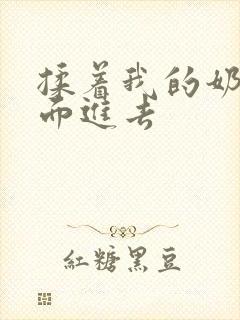 揉着我的奶
而進去
紅糖黑豆